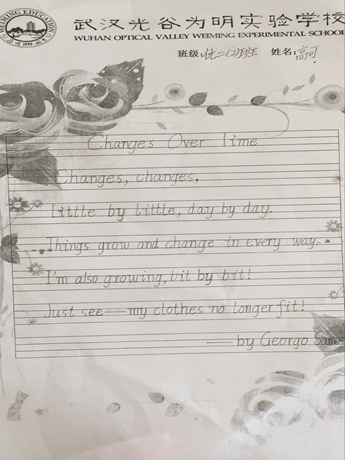 WEIMING EDUCATION
武汉光谷为明实验学校
WUHAN OPTICAL VALLEY WEIMING EXPERIMENTAL SCHOOL
班级 二〇 班 姓名:高可
Changes Over Time
Changes, changes,
Little by little, day by day.
Things grow and change in every way.
I'm also growing, bit by bit!
Just see—my clothes no longer fit!
—by Georgo